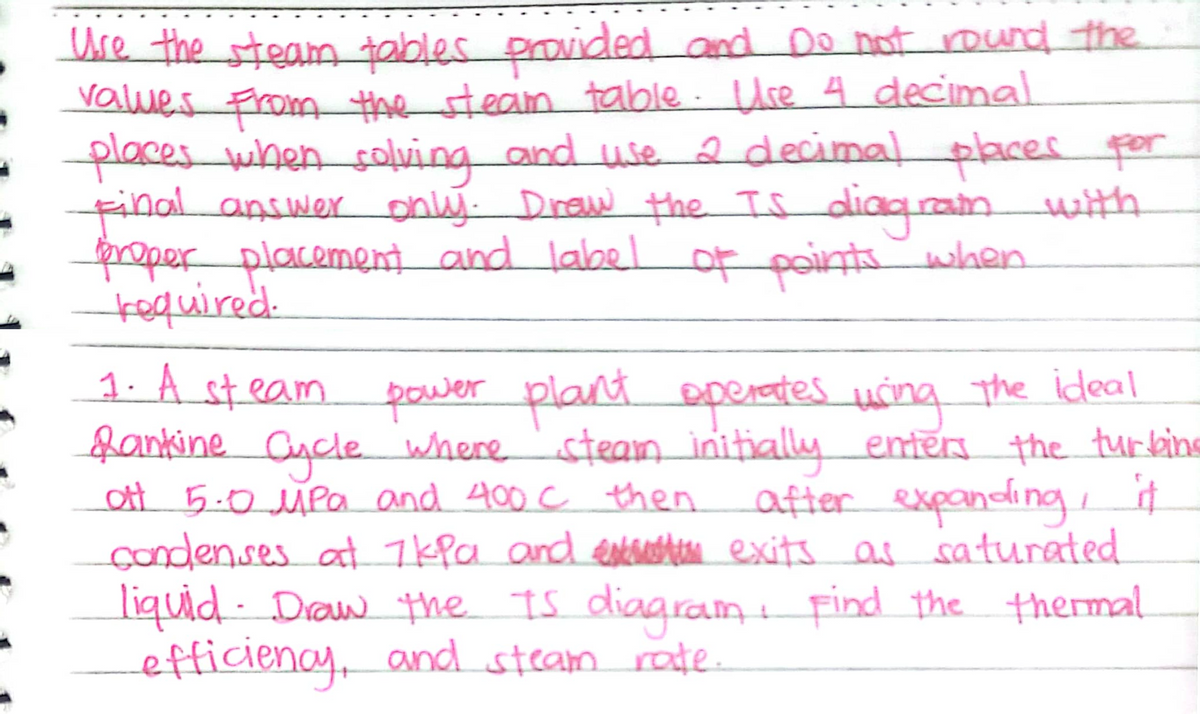 Use the steam tables provided and Do not round the
values From the steam table. Use 4 decimal
places when solving and use 2 decimal places for
Final answer only. Draw the TS diagram with
proper placement and label of points when
required.
1. A steam power plant operates using the ideal
Rankine Cycle where steam initially enters the turbine
at 5.0 MPa and 400 C then after expanding, it
condenses at 7kPa and exits as saturated
liquid. Draw the TS diagram, Find the thermal
efficiency, and steam rate.